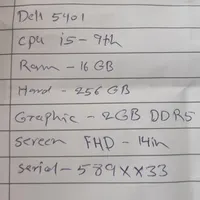 Dell 5401
cpu i5-9th
Ram - 16 GB
Hard - 256 GB
Graphic - 2GB DDR5
screen FHD - 14in
serial - 589XX33